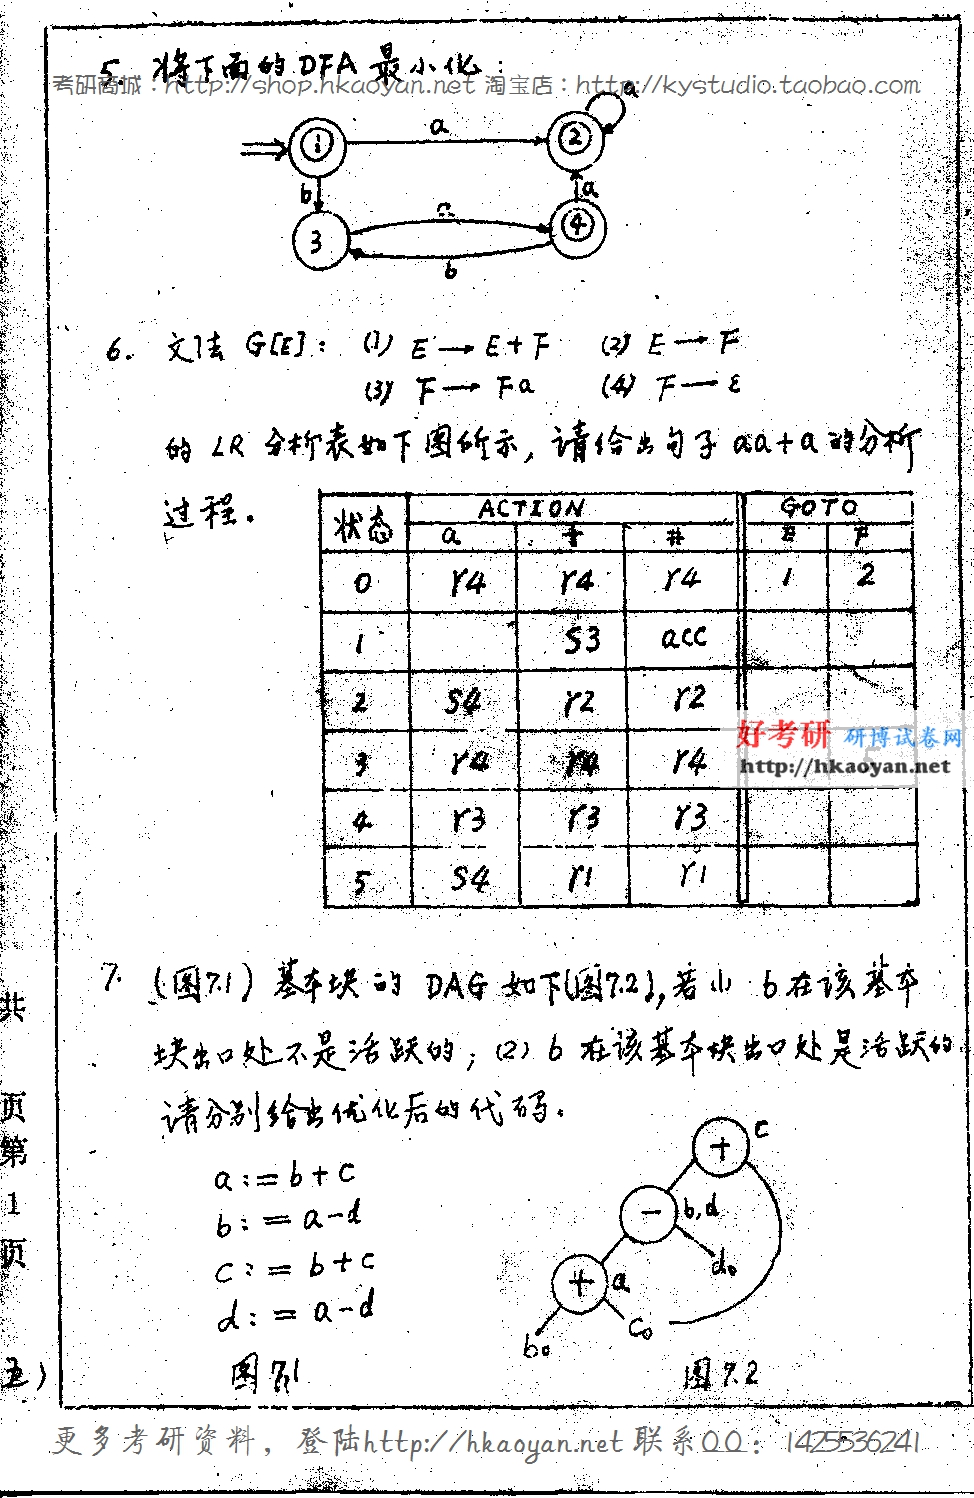 5. 将下面的DFA最小化:
考研商城：http://shop.hkaoyan.net 淘宝店：http://kystudio.taobao.com
a
1
a
2
b
a
3
a
4
b
6. 文法 G[E]: (1) E → E+F (2) E → F
(3) F → Fa (4) F → ε
的 LR 分析表如下图所示, 请给出句子 aa+a 的分析
过程。
状态 ACTION GOTO
a + # E F
0 r4 r4 r4 1 2
1 S3 acc
2 S4 r2 r2
3 r4 r4 r4
4 r3 r3 r3
5 S4 r1 r1
好考研 研博试卷网
http://hkaoyan.net
7. (图7.1) 基本块的 DAG 如下(图7.2), 若(1) b 在该基本
块出口处不是活跃的; (2) b 在该基本块出口处是活跃的.
请分别给出优化后的代码。
a:=b+c
b:=a-d
c:=b+c
d:=a-d
图7.1
+ c
- b,d
+ a
d₀
b₀
c₀
图7.2
共
页
第
1
页
五)
更多考研资料，登陆http://hkaoyan.net 联系QQ：1425536241